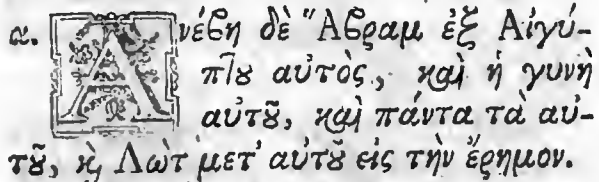 α. Ἀνέϐη δὲ Ἄϐραμ ἐξ Αἰγύ-
πτȣ αὐτὸς, καὶ ἡ γυνὴ
αὐτȣ͂, καὶ πάντα τὰ αὐ-
τȣ͂, ϗ̀ Λὼτ μετ' αὐτȣ͂ εἰς τὴν ἔρημον.